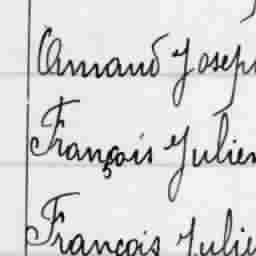 Armand Joseph
François Julien
François Julie